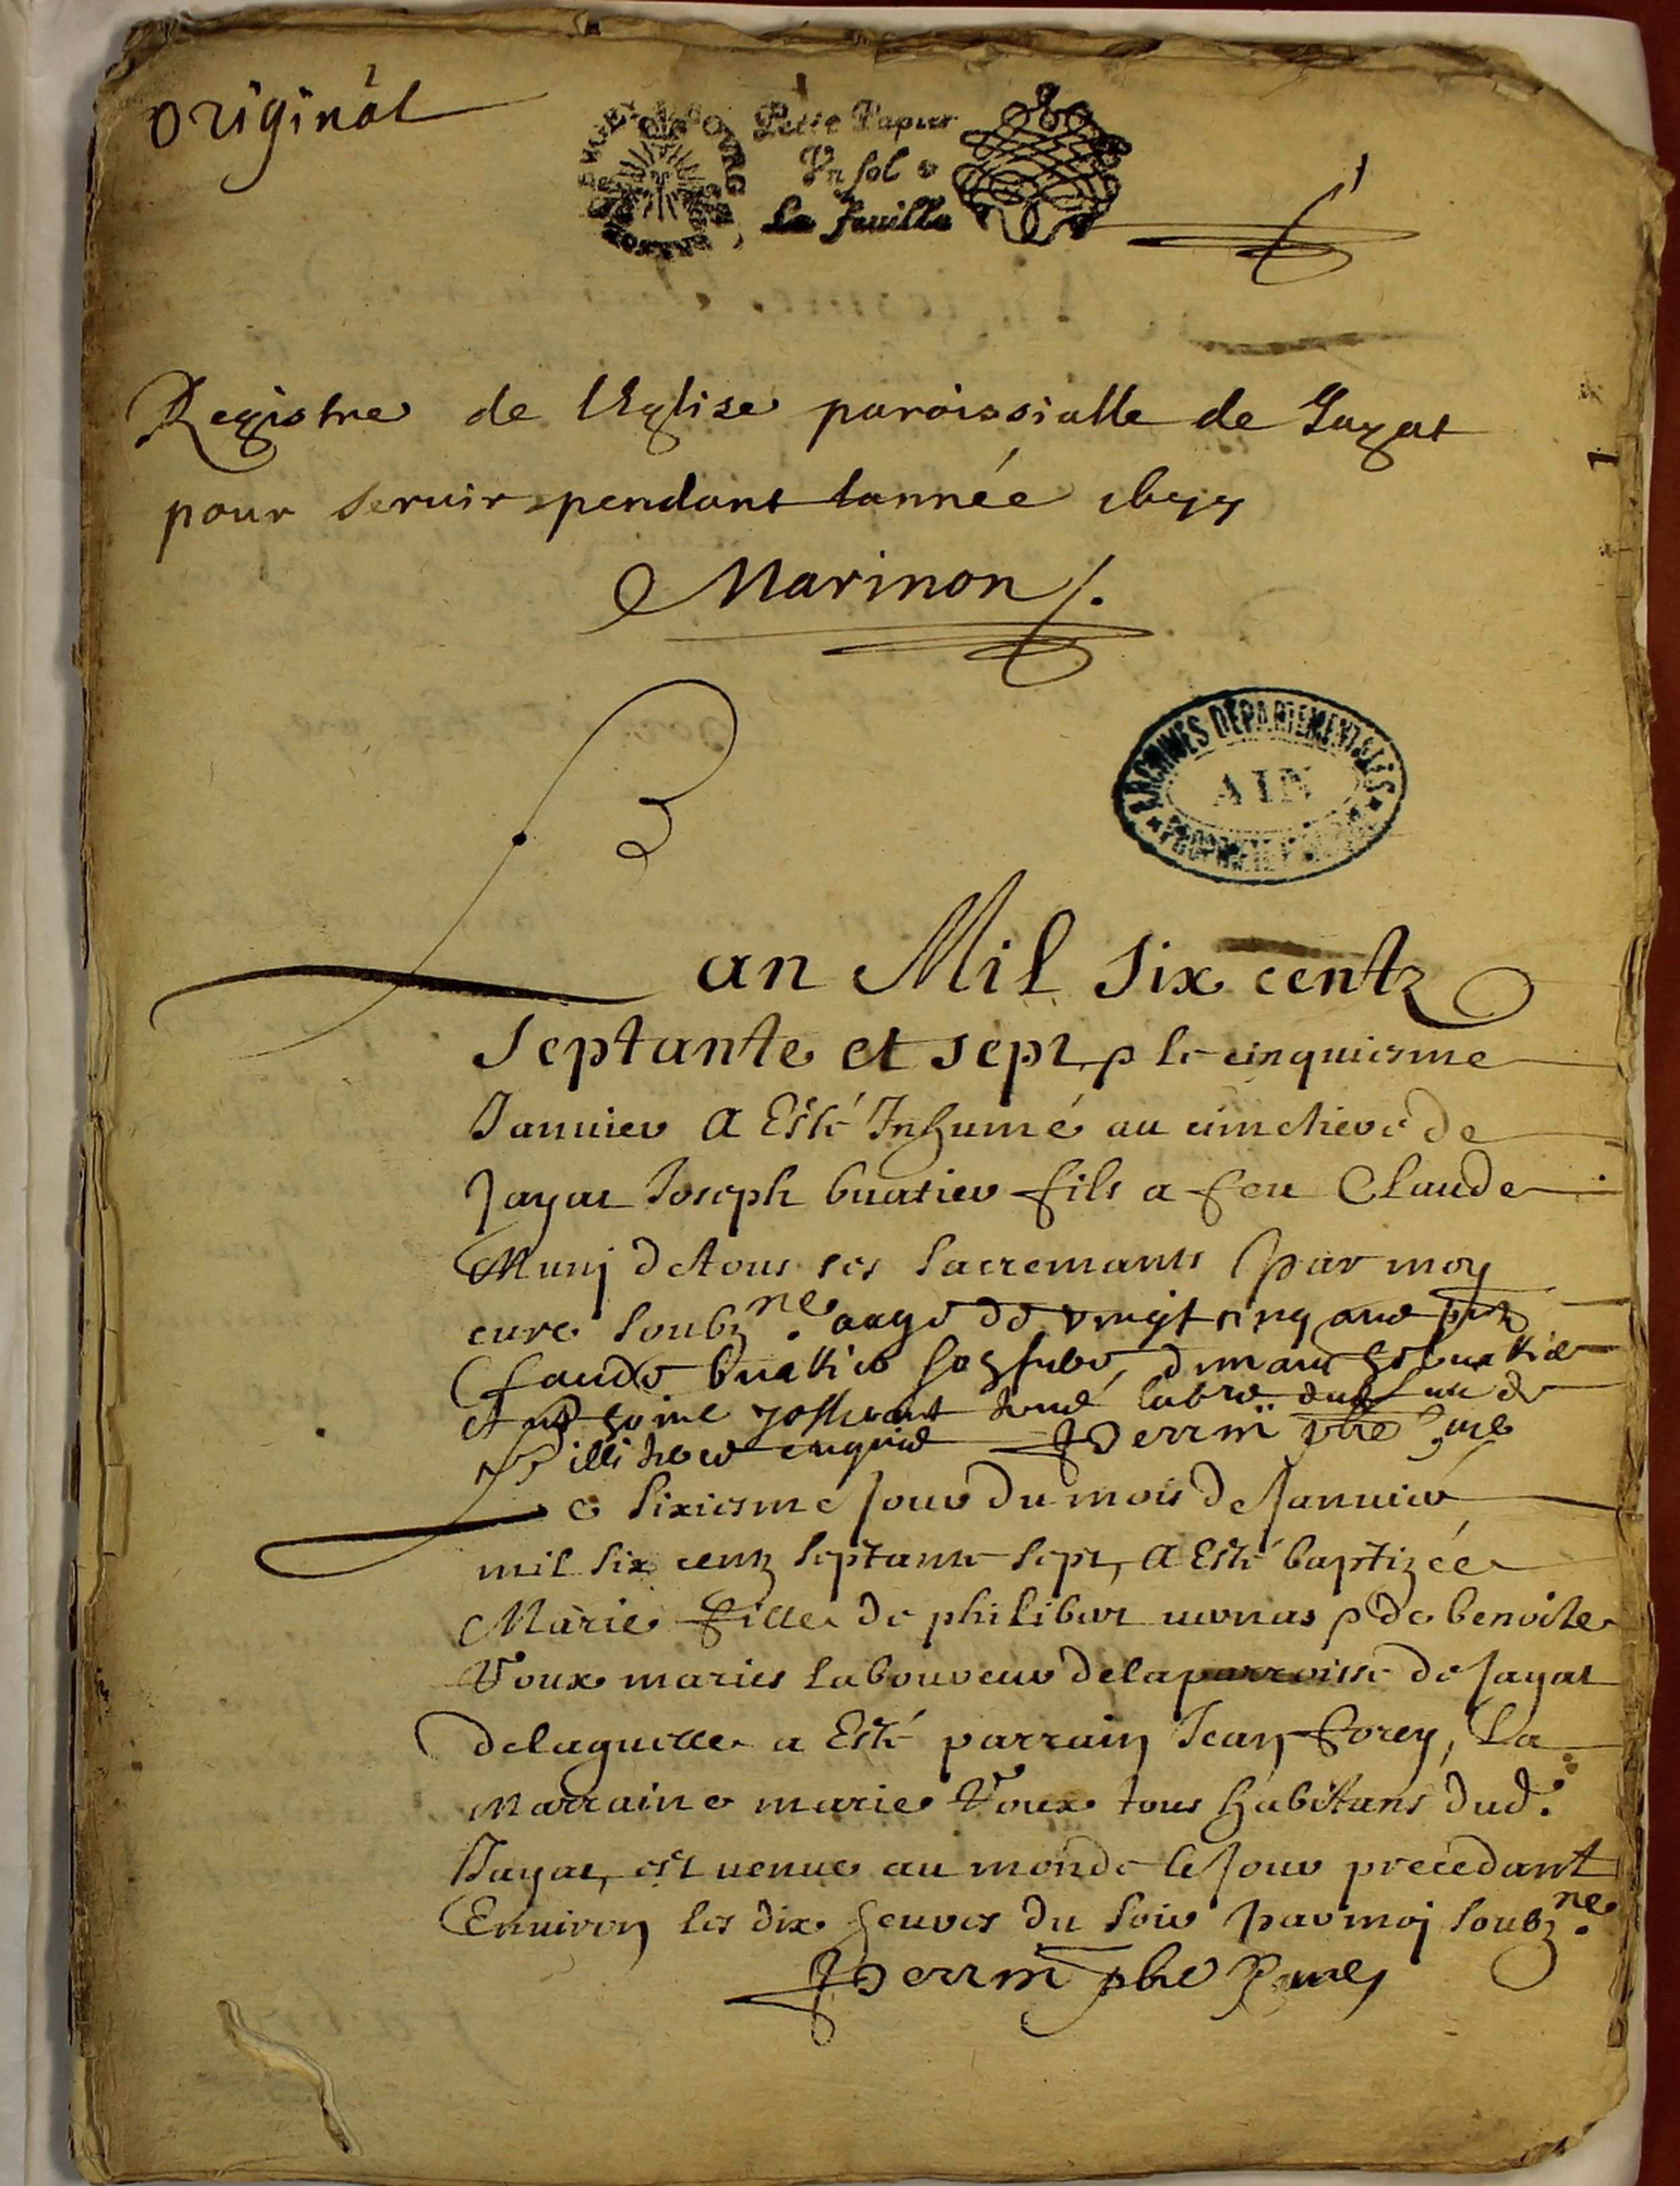 original
Petit Papier
Vn sol
La feuille
Registre de lEglise paroissialle de Jayat
pour seruir pendant lannée
Marinon
ARCHIVES DEPARTEMENTALES
AIN
Lan Mil six centz
septante et sept le cinquiesme
Januier a Esté Inhumé au cimetiere de
Jayat Joseph buatier fils a feu Claude
Muni de tous ses sacremants par moy
curé soubz.né aagé de vingt cinq ans
Claude buattier
Perrin pbre Curé
Le sixiesme Jour du mois de Januier
mil six centz septante sept, a Esté baptizée
Marie fille de philibert & de benoite
Voux mariés laboureur de la parroisse de Jayat
de laquelle a Esté parrain Jean forey, La
Marraine marie Voux tous habitans dud.
Jayat, est venue au monde le Jour precedant
Enuiron les dix heures du soir par moi soubz.né
Perrin pbre Curé